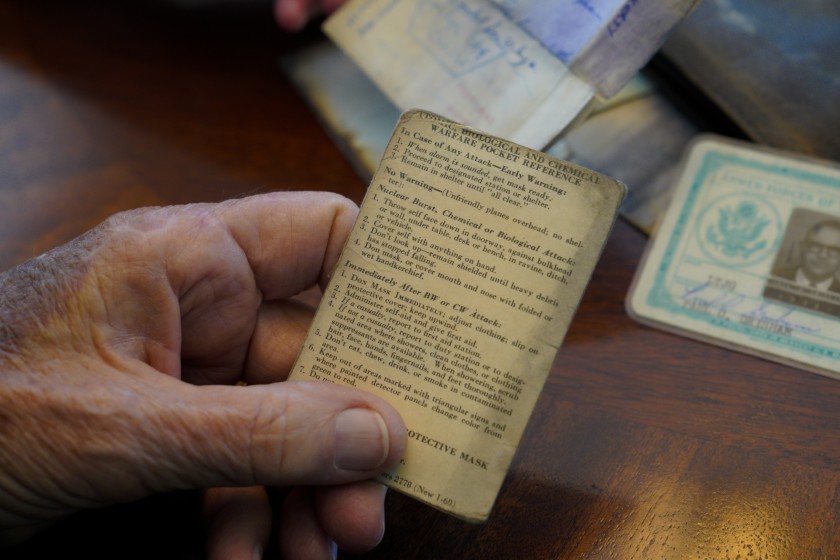 BIOLOGICAL AND CHEMICAL
WARFARE POCKET REFERENCE
In Case of Any Attack—Early Warning:
1. When alarm is sounded, get mask ready.
2. Proceed to designated station or shelter.
3. Remain in shelter until "all clear."
No Warning—(Unfriendly planes overhead; no shel-
ter):
Nuclear Burst, Chemical or Biological Attack:
1. Throw self face down in doorway, against bulkhead
or wall, under table, desk or bench, in ravine, ditch,
or vehicle.
2. Cover self with anything on hand.
3. Don't look up—remain shielded until heavy debris
has stopped falling.
4. Don mask, or cover mouth and nose with folded or
wet handkerchief.
Immediately After BW or CW Attack:
1. DON MASK IMMEDIATELY; adjust clothing; slip on
protective cover; keep upwind.
2. Administer self-aid and give first aid.
3. If a casualty, report to aid station.
4. If not a casualty, report to duty station or to desig-
nated area where showers, clean clothes, or clothing
replacements are available. When showering, scrub
hair, face, hands, fingernails, and feet thoroughly.
5. Don't eat, chew, drink, or smoke in contaminated
area.
6. Keep out of areas marked with triangular signs and
where painted detector panels change color from
green to red.
7. Do
PROTECTIVE MASK
2778 (New 1-60)
UNITED STATES